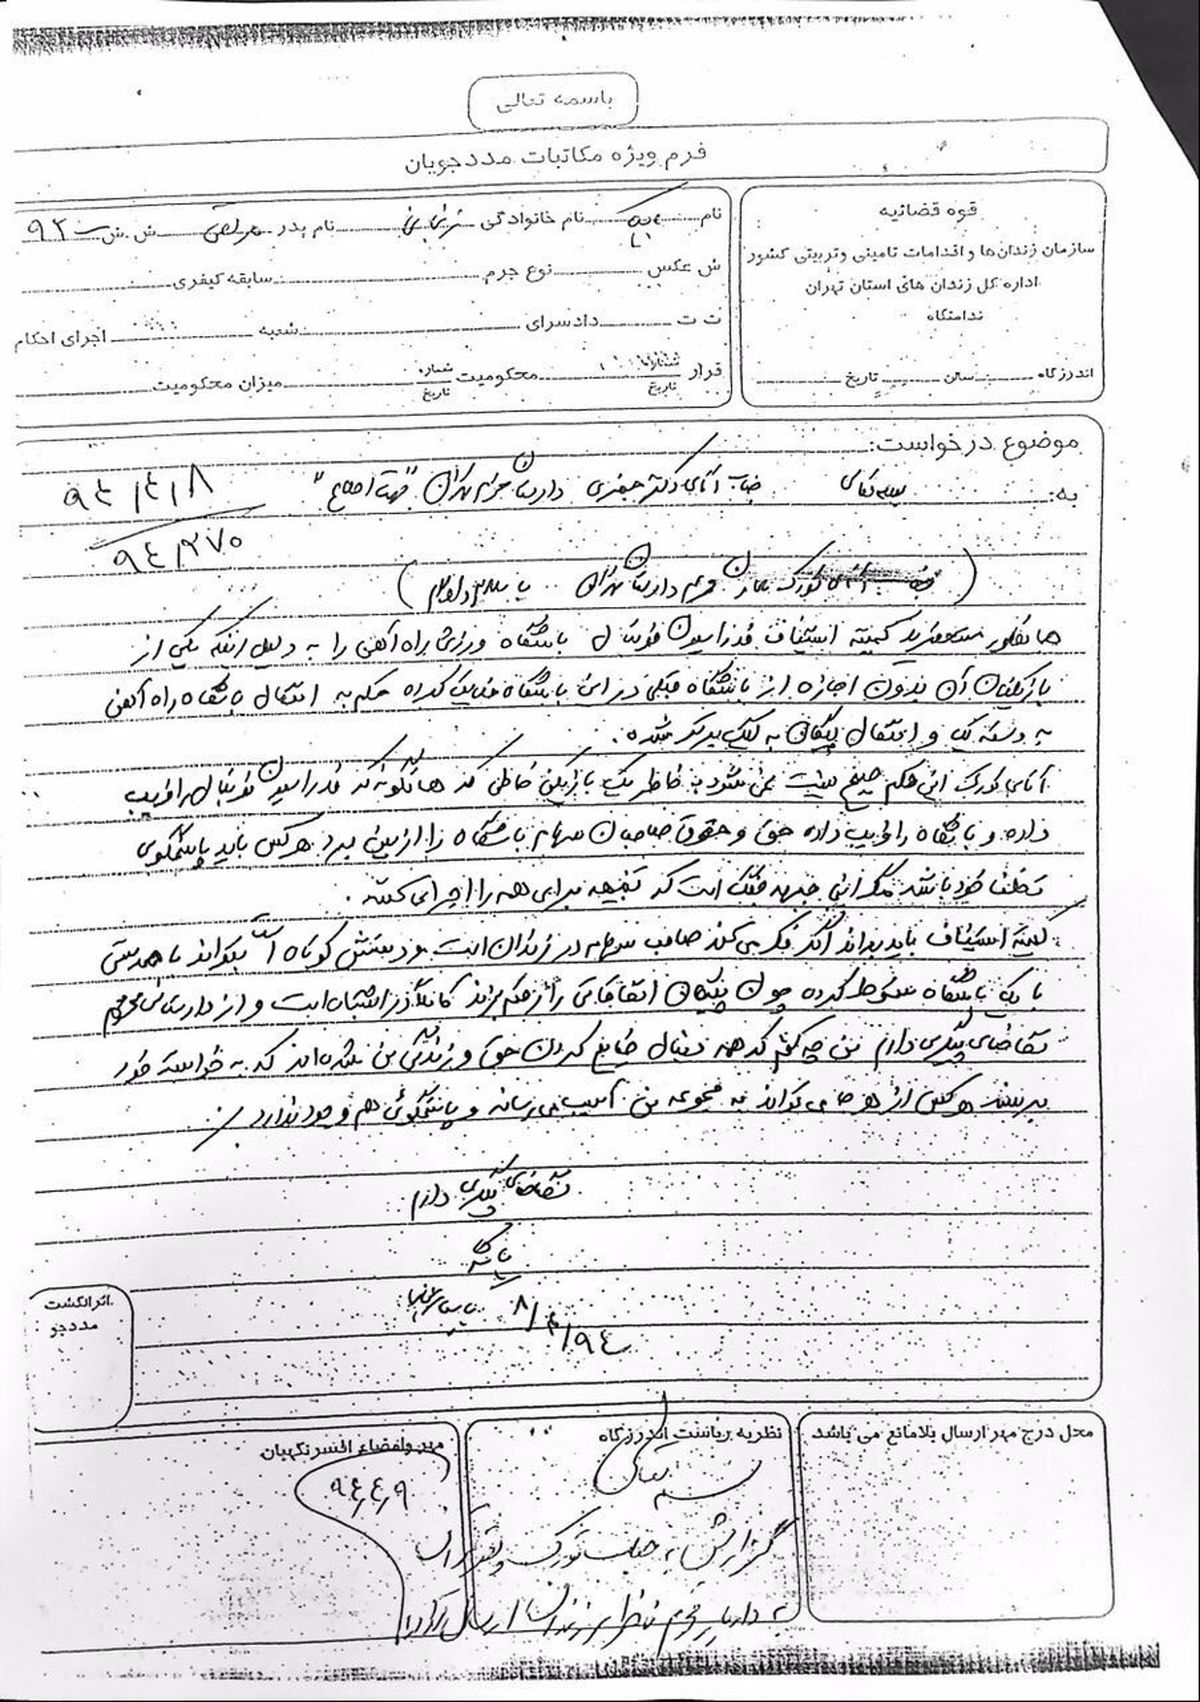 باسمه تعالی
فرم ویژه مکاتبات مددجویان
قوه قضائیه
سازمان زندان‌ها و اقدامات تامینی و تربیتی کشور
اداره کل زندان های استان تهران
ندامتگاه
اندرزگاه سالن تاریخ
نام بابک نام خانوادگی زنجانی نام پدر مرتضی ش ش ۹۲
ش عکس نوع جرم سابقه کیفری
ت ت دادسرای شعبه اجرای احکام
قرار شماره تاریخ محکومیت شماره تاریخ میزان محکومیت
موضوع درخواست:
به: بسمه تعالی جناب آقای دکتر جعفری دادستان محترم تهران "جهت اطلاع" ۹۴/۴/۸
۹۴/۲۷۰
( جناب آقای تورک معاون محترم دادستان تهران با سلام و احترام )
همانطور مستحضرید کمیته استیناف فدراسیون فوتبال باشگاه ورزشی راه آهن را به دلیل اینکه یکی از
بازیکنان آن بدون اجازه از باشگاه قبلی در این باشگاه فعالیت کرده حکم به انتقال باشگاه راه آهن
به دسته یک و انتقال پیکان به لیگ برتر شده.
آقای تورک این حکم صحیح نیست نمی شود به خاطر یک بازیکن خاطی که همانگونه که فدراسیون فوتبال را فریب
داده و باشگاه را فریب داده حق و حقوق صاحبان سهام باشگاه را از بین برد هر کس باید پاسخگوی
تخلف خود باشد مگر این جبهه جنگ است که تنبیه برای همه را اجرا می کنند.
کمیته استیناف باید بداند اگر فکر می کند صاحب سهام در زندان است و دستش کوتاه است بتواند با همدستی
با یک باشگاه سقوط کرده چون پیکان اتفاقاتی را رقم بزند کاملاً در اشتباه است و از دادستان محترم
تقاضای پیگیری دارم من چه کنم که همه دنبال ضایع کردن حق و زندگی من شده اند که به خواسته خود
برسند هر کس از هر جا می تواند به مجموعه من آسیب می رساند و پاسخگوئی هم وجود ندارد.
تقاضای پیگیری دارم
با تشکر
۹۴/۴/۸
اثر انگشت
مددجو
محل درج مهر ارسال بلامانع می باشد
نظریه ریاست اندرزگاه
مهر و امضاء افسر نگهبان
۹۴٫۴٫۹
بسمه تعالی
گزارش به جناب تورک و تصویر آن
به دادیار محترم ناظر بر زندان ارسال گردد